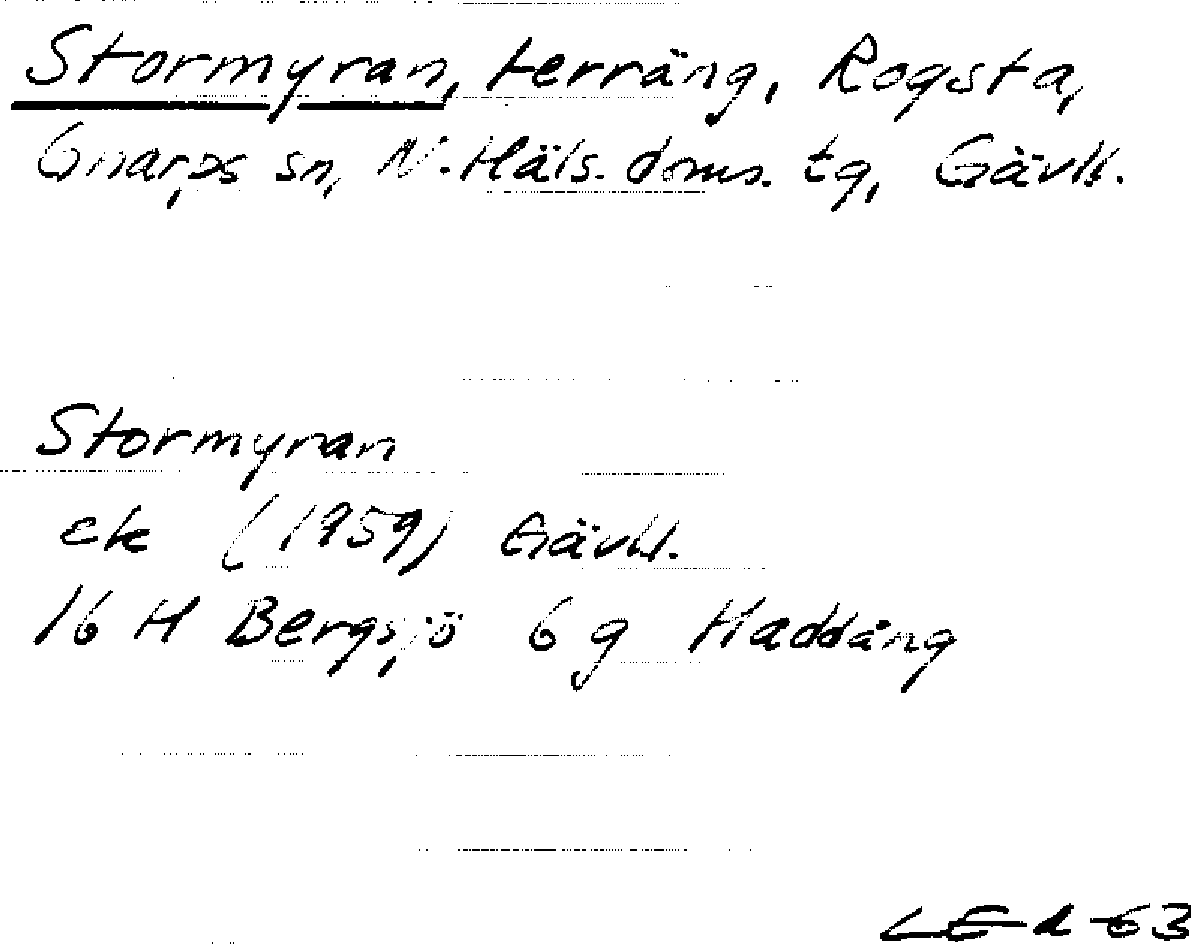 Stormyran, terräng, Rogsta,
Gnarps sn, N. Häls. doms. tg, Gävl.
Stormyran
ek (1959) Gävl.
16 H Bergsjö 6 g Haddäng
63